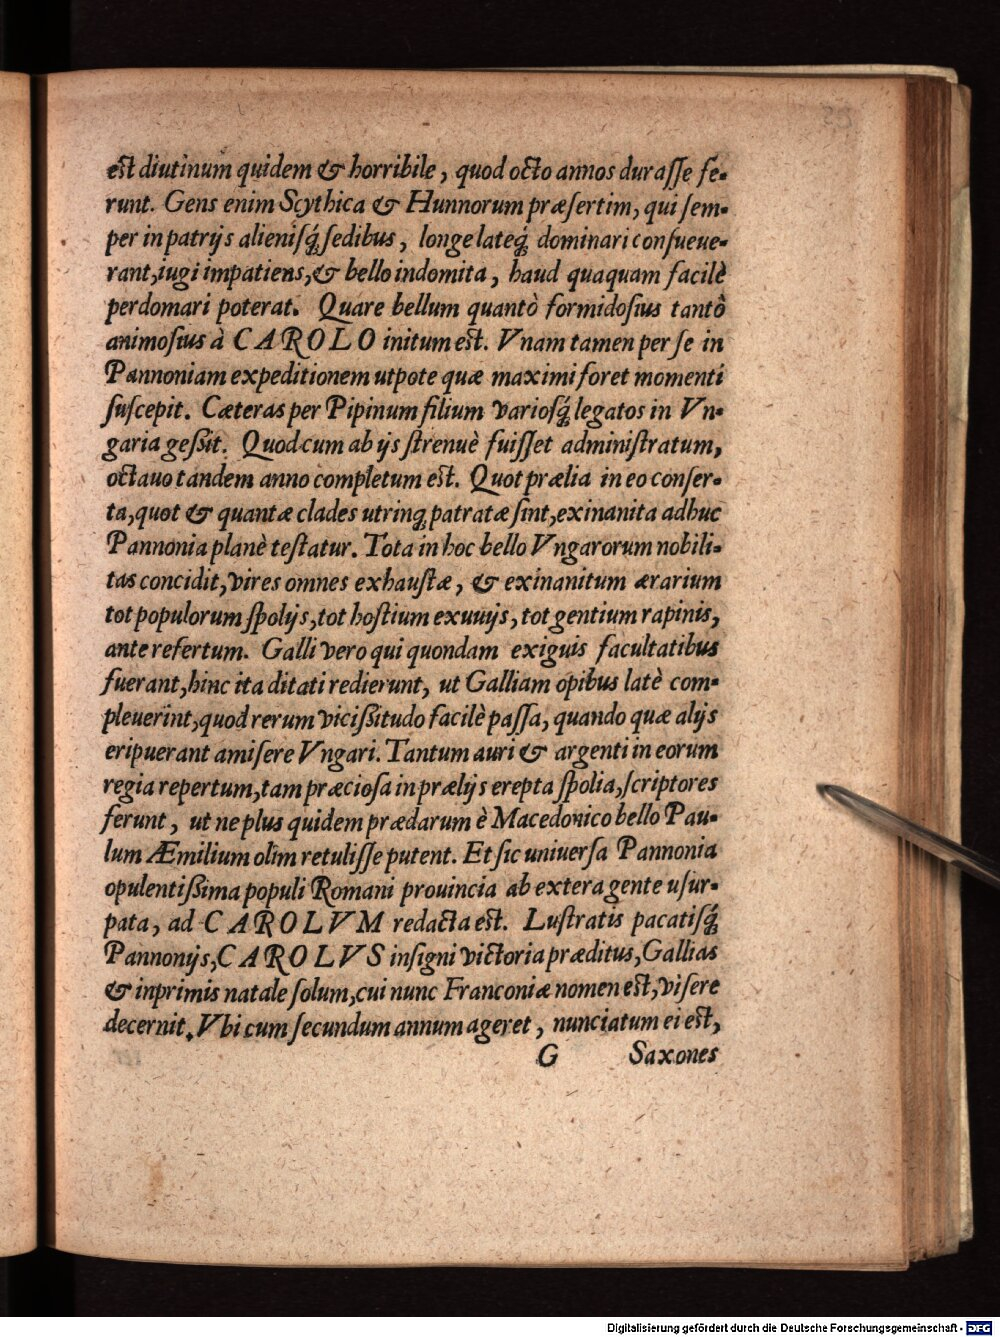 25
est diutinum quidem & horribile, quod octo annos durasse fe-
runt. Gens enim Scythica & Hunnorum præsertim, qui sem-
per in patrijs alienisq́ꝫ sedibus, longe lateq́ꝫ dominari consueue-
rant, iugi impatiens, & bello indomita, haud quaquam facilè
perdomari poterat. Quare bellum quantò formidosius tantò
animosius à CAROLO initum est. Vnam tamen per se in
Pannoniam expeditionem utpote quæ maximi foret momenti
suscepit. Cæteras per Pipinum filium variosq́ꝫ legatos in Vn-
garia gessit. Quod cum ab ijs strenuè fuisset administratum,
octauo tandem anno completum est. Quot prælia in eo conser-
ta, quot & quantæ clades utrinqꝫ patratæ sint, exinanita adhuc
Pannonia planè testatur. Tota in hoc bello Vngarorum nobili-
tas concidit, vires omnes exhaustæ, & exinanitum ærarium
tot populorum spolijs, tot hostium exuuijs, tot gentium rapinis,
ante refertum. Galli vero qui quondam exiguis facultatibus
fuerant, hinc ita ditati redierunt, ut Galliam opibus latè com-
pleuerint, quod rerum vicissitudo facilè passa, quando quæ alijs
eripuerant amisere Vngari. Tantum auri & argenti in eorum
regia repertum, tam præciosa in prælijs erepta spolia, scriptores
ferunt, ut ne plus quidem prædarum è Macedonico bello Pau-
lum Æmilium olim retulisse putent. Et sic uniuersa Pannonia
opulentissima populi Romani prouincia ab extera gente usur-
pata, ad CAROLVM redacta est. Lustratis pacatisq́ꝫ
Pannonijs, CAROLVS insigni victoria præditus, Gallias
& inprimis natale solum, cui nunc Franconiæ nomen est, visere
decernit. Vbi cum secundum annum ageret, nunciatum ei est,
G Saxones
Digitalisierung gefördert durch die Deutsche Forschungsgemeinschaft - DFG